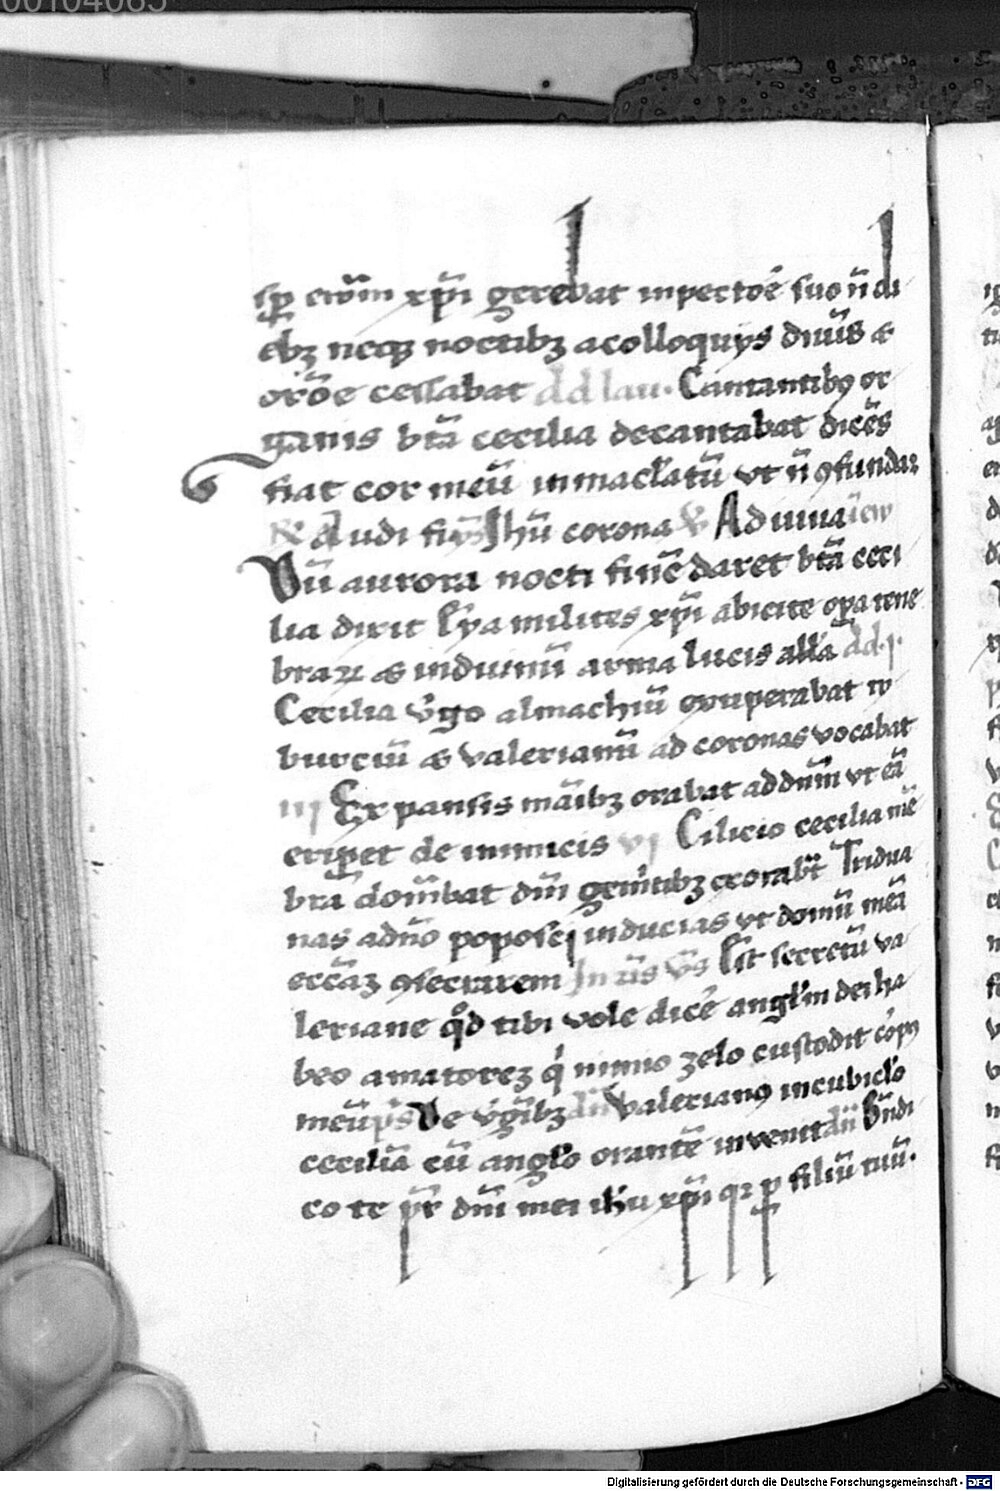 00104085
sp ew̄m xp̄i gerebat inpectoē suo n̄ di
ebꝫ neqꝫ noctibꝫ acolloquijs diuīs ⁊
orōe cessabat Cantantibꝯ or
ganis bt̄a cecilia decantabat dicēs
fiat cor meū inmacl̄atū vt n̄ ꝯfundar
audi fily Jhū corona Ad iuua
Dū aurora nocti finē daret bt̄a ceci
lia dixit Eya milites xp̄i abicite oꝑa tene
braꝝ ⁊ induimī arma lucis all̄a
Cecilia v̄go almachiū exuperabat ty
burciū ⁊ valerianū ad coronas vocabat
iij Expansis māibꝫ orabat ad dn̄m vt eā
eriꝑet de inimicis vj Cilicio cecilia mē
bra domābat dn̄m gemītibꝫ exorabt̄ Tridua
nas adn̄o poposci inducias vt domū meā
ecc̄aꝫ ꝯsecrarem Est secretū va
leriane qd tibi vole dicē angl̄m dei ha
beo amatoreꝫ q̇ nimio zelo custodit corpꝯ
meū De v̄gīibꝫ Valerianꝯ incubicl̄o
ceciliā cū angl̄o orantē invenit Bn̄di
co te pr̄ dn̄i mei ih̄u xp̄i qꝛ ꝑ filiū tuū.
Digitalisierung gefördert durch die Deutsche Forschungsgemeinschaft - DFG